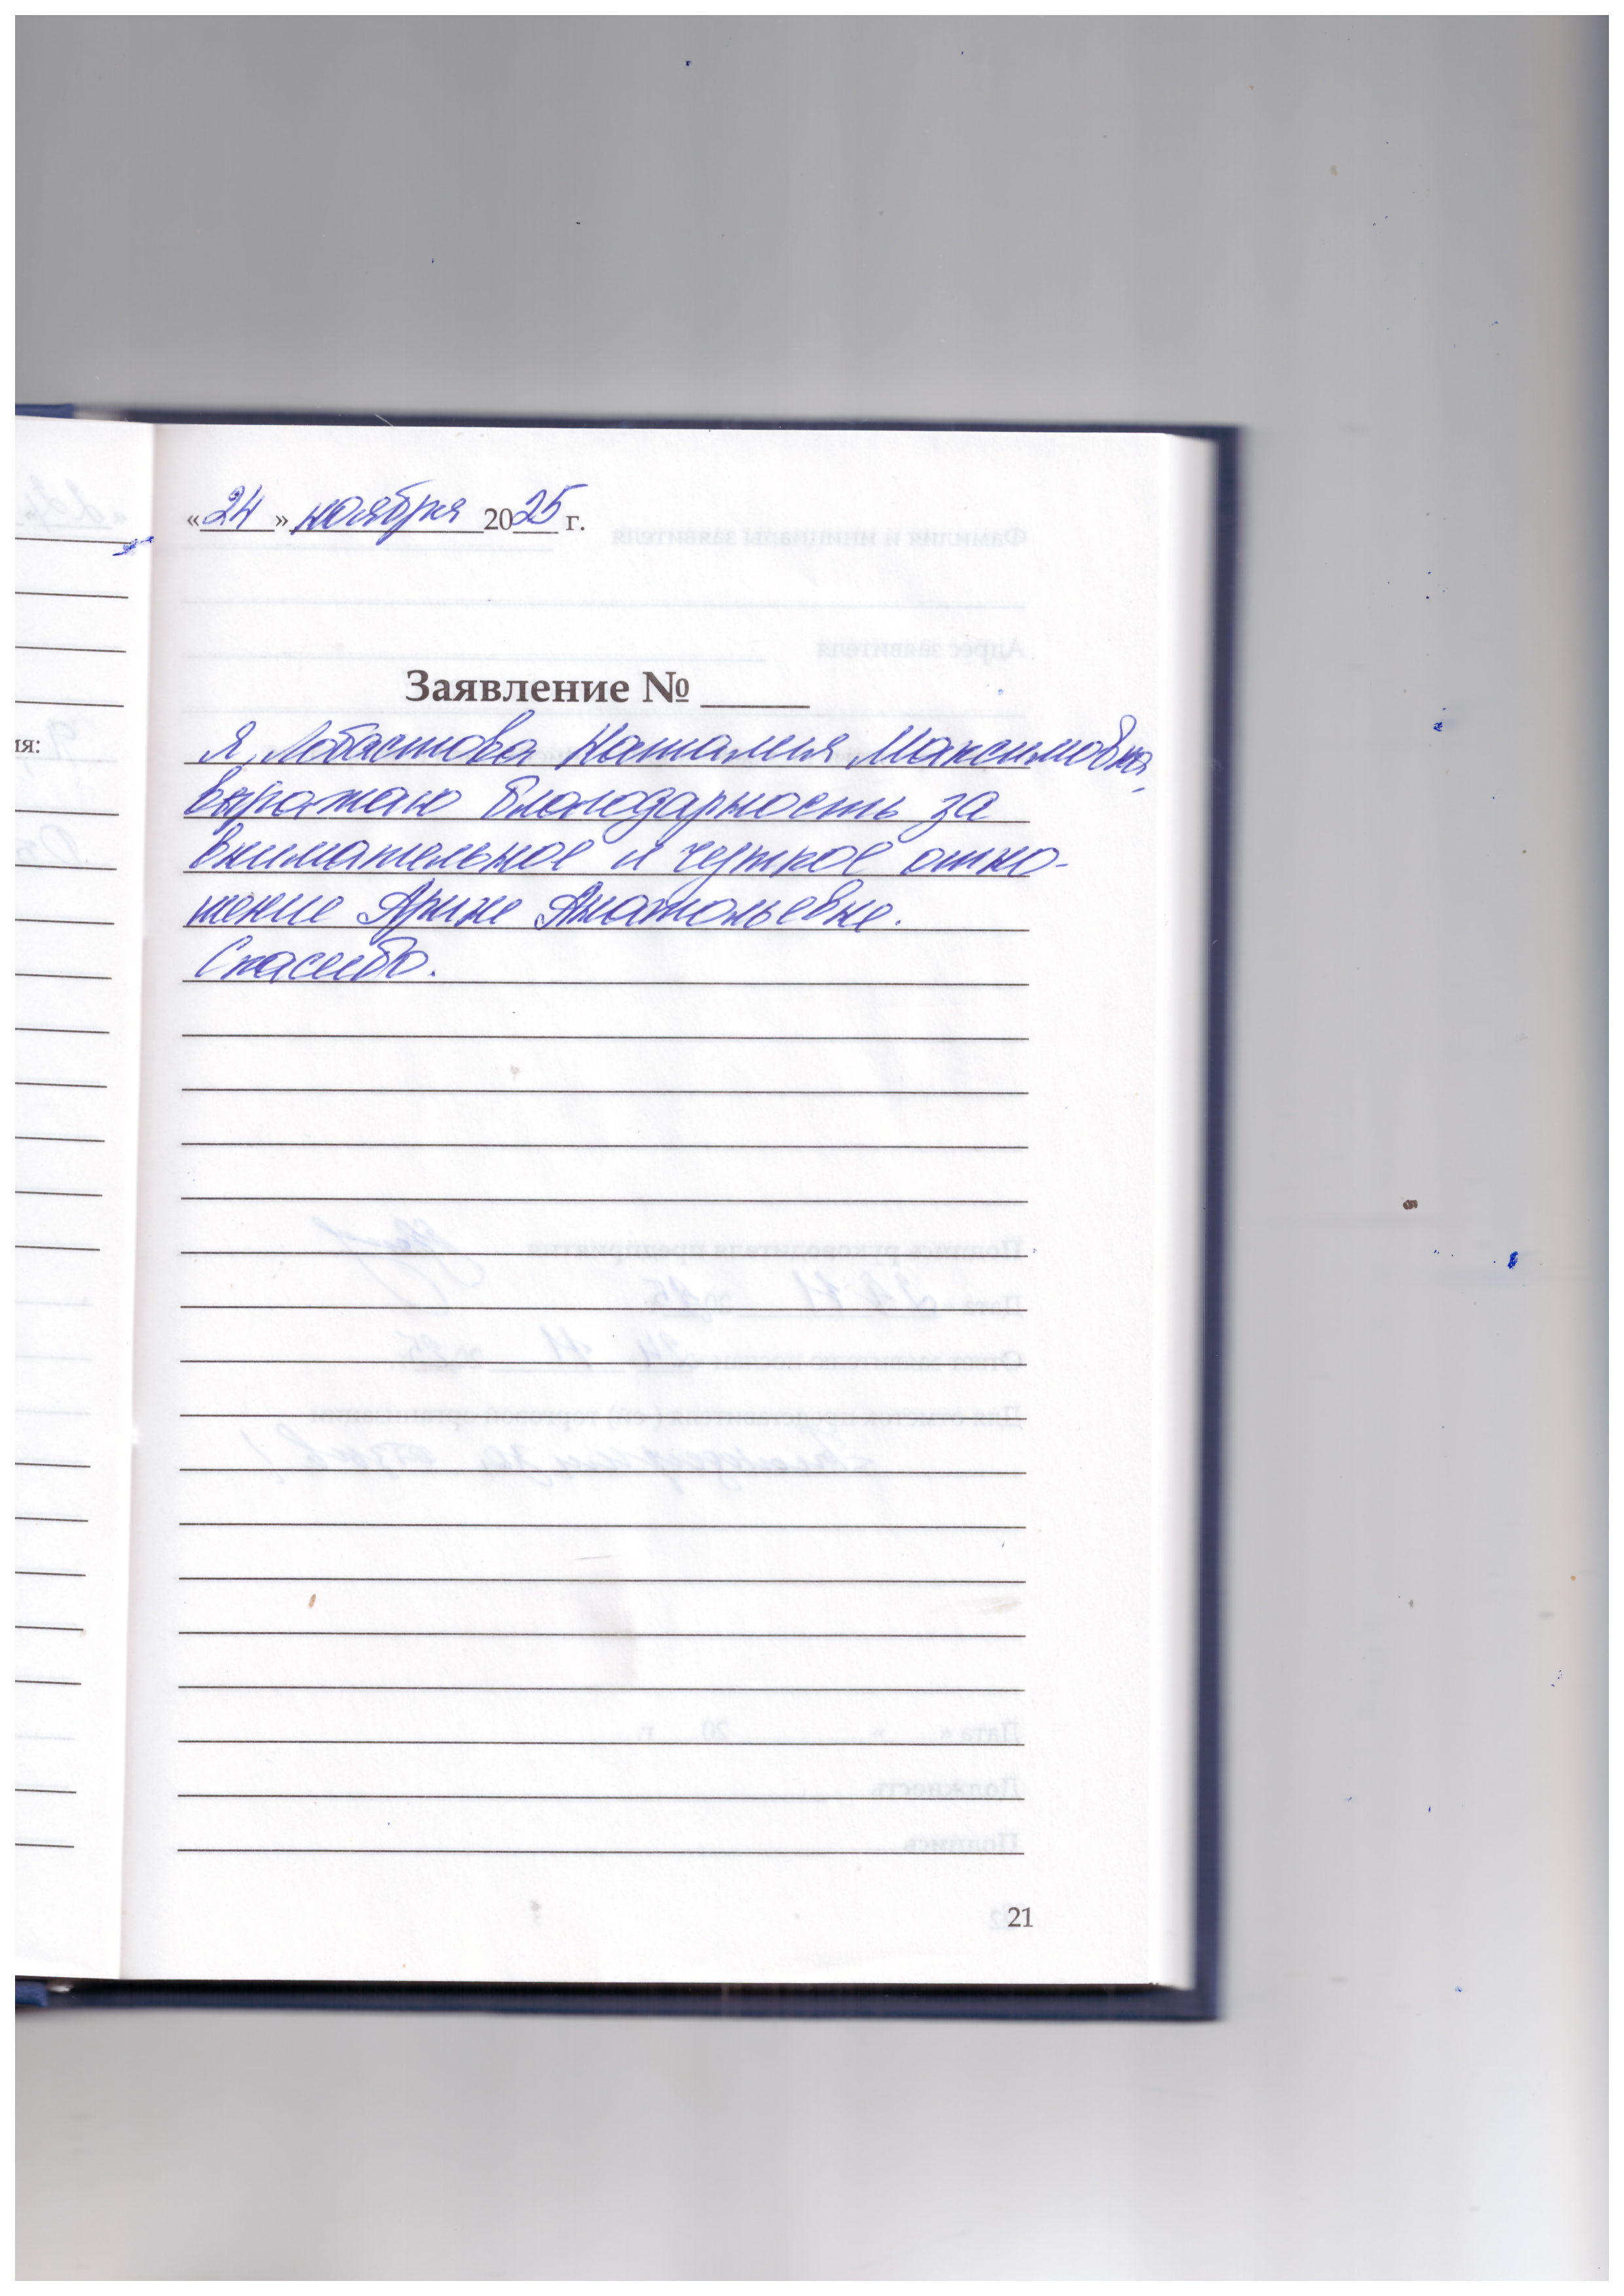 «24» ноября 2025 г.
Заявление № ____
Я, Лобастова Наталия Максимовна,
выражаю благодарность за
внимательное и чуткое отно-
шение Арине Анатольевне.
Спасибо.
ия:
21